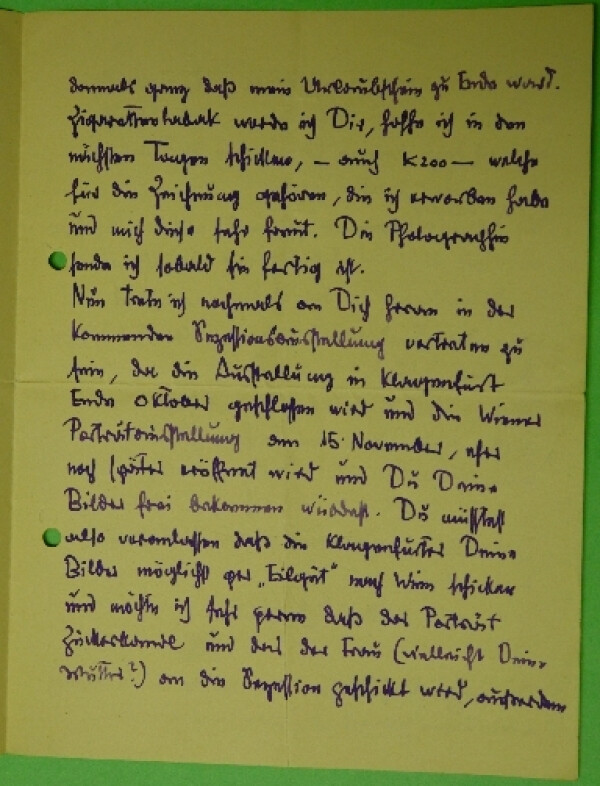 damals ganz daß mein Urlaubschein zu Ende ward.
Zigarettentabak werde ich Dir, hoffe ich in den
nächsten Tagen schicken, – auch K200 – welche
für die Zeichnung gehören, die ich erworben habe
und mich diese sehr freut. Die Photographie
sende ich sobald sie fertig ist.
Nun trete ich nochmals an Dich heran in der
kommenden Sezessionsausstellung vertreten zu
sein, da die Ausstellung in Klagenfurt
Ende Oktober geschlossen wird und die Wiener
Porträtausstellung am 15. November, eher
noch später eröffnet wird und Du Deine
Bilder frei bekommen würdest. Du müsstest
also veranlassen daß die Klagenfurter Deine
Bilder möglichst per „Eilgut" nach Wien schicken
und möchte ich sehr gerne daß das Porträt
Zuckerkandl und das der Frau (vielleicht Deine
Mutter?) an die Sezession geschickt wird, ausserdem